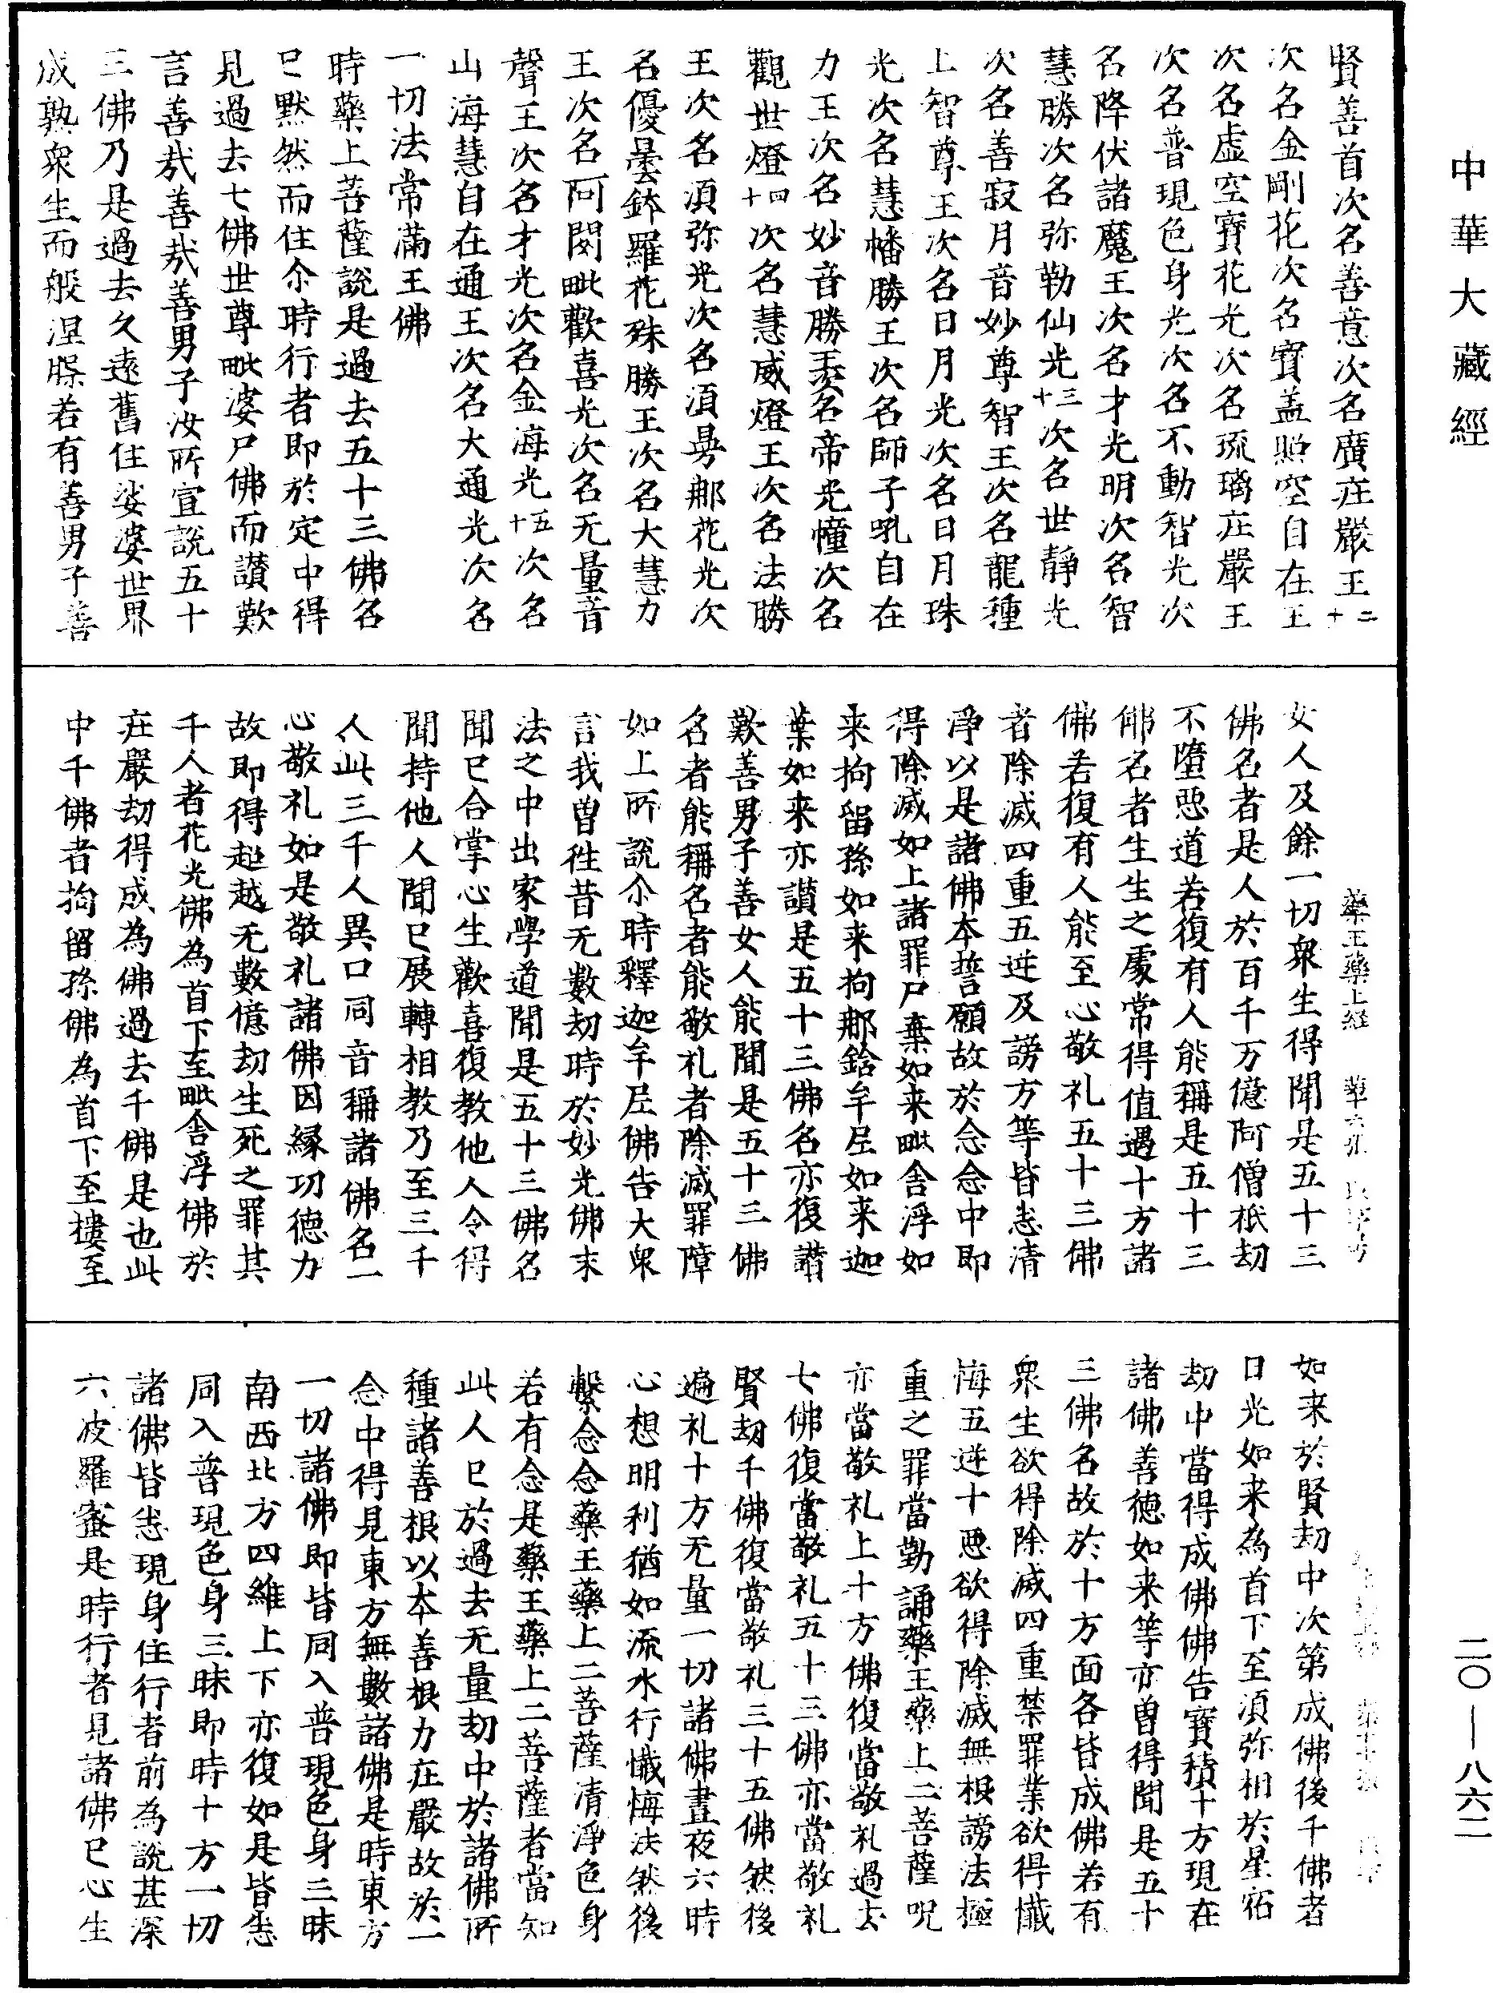 中華大藏經
賢善首次名善意次名廣庄嚴王二十
次名金剛花次名寶盖照空自在王
次名虛空寶花光次名琉璃庄嚴王
次名普現色身光次名不動智光次
名降伏諸魔王次名才光明次名智
慧勝次名弥勒仙光三十次名世靜光
次名善寂月音妙尊智王次名龍種
上智尊王次名日月光次名日月珠
光次名慧幡勝王次名師子吼自在
力王次名妙音勝王次名帝光幢次名
觀世燈四十次名慧威燈王次名法勝
王次名湏弥光次名湏曼那花光次
名優曇鉢羅花殊勝王次名大慧力
王次名阿閦毗歡喜光次名无量音
聲王次名才光次名金海光五十次名
山海慧自在通王次名大通光次名
一切法常滿王佛
時藥上菩薩說是過去五十三佛名
已默然而住尒時行者即於定中得
見過去七佛世尊毗婆尸佛而讃歎
言善㢤善㢤善男子汝所宣說五十
三佛乃是過去久遠舊住娑婆世界
成熟衆生而般涅槃若有善男子善
藥王藥上經
女人及餘一切衆生得聞是五十三
佛名者是人於百千万億阿僧祇劫
不墮惡道若復有人能稱是五十三
佛名者生生之處常得值遇十方諸
佛若復有人能至心敬礼五十三佛
者除滅四重五逆及謗方等皆悉清
淨以是諸佛本誓願故於念念中即
得除滅如上諸罪尸棄如来毗舍浮如
来拘留孫如来拘那鋡牟尼如来迦
葉如来亦讃是五十三佛名亦復讃
歎善男子善女人能聞是五十三佛
名者能稱名者能敬礼者除滅罪障
如上所說尒時釋迦牟尼佛告大衆
言我曾徃昔无數劫時於妙光佛末
法之中出家學道聞是五十三佛名
聞已合掌心生歡喜復教他人令得
聞持他人聞已展轉相教乃至三千
人此三千人異口同音稱諸佛名一
心敬礼如是敬礼諸佛因緣功德力
故即得超越无數億劫生死之罪其
千人者花光佛為首下至毗舍浮佛於
庄嚴劫得成為佛過去千佛是也此
中千佛者拘留孫佛為首下至樓至
如来於賢劫中次第成佛後千佛者
日光如来為首下至湏弥相於星宿
劫中當得成佛佛告寶積十方現在
諸佛善德如来等亦曾得聞是五十
三佛名故於十方面各皆成佛若有
衆生欲得除滅四重禁罪業欲得懺
悔五逆十惡欲得除滅無根謗法極
重之罪當勤誦藥王藥上二菩薩呪
亦當敬礼上十方佛復當敬礼過去
七佛復當敬礼五十三佛亦當敬礼
賢劫千佛復當敬礼三十五佛然後
遍礼十方无量一切諸佛晝夜六時
心想明利猶如流水行懺悔法然後
繫念念藥王藥上二菩薩清淨色身
若有念是藥王藥上二菩薩者當知
此人已於過去无量劫中於諸佛所
種諸善根以本善根力庄嚴故於一
念中得見東方無數諸佛是時東方
一切諸佛即皆同入普現色身三昧
南西北方四維上下亦復如是皆悉
同入普現色身三昧即時十方一切
諸佛皆悉現身住行者前為說甚深
六波羅蜜是時行者見諸佛已心生
二〇—八六二